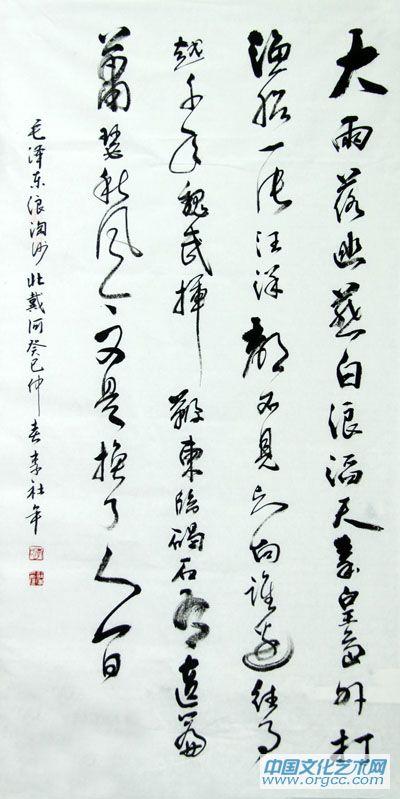 大雨落幽燕白浪滔天秦皇島外打
漁船一片汪洋都不見知向誰邊往事
越千年魏武揮鞭東臨碣石有遺篇
蕭瑟秋風今又是換了人間
毛泽东浪淘沙北戴河癸巳仲春李社年
中国文化艺术网
www.orgcc.com